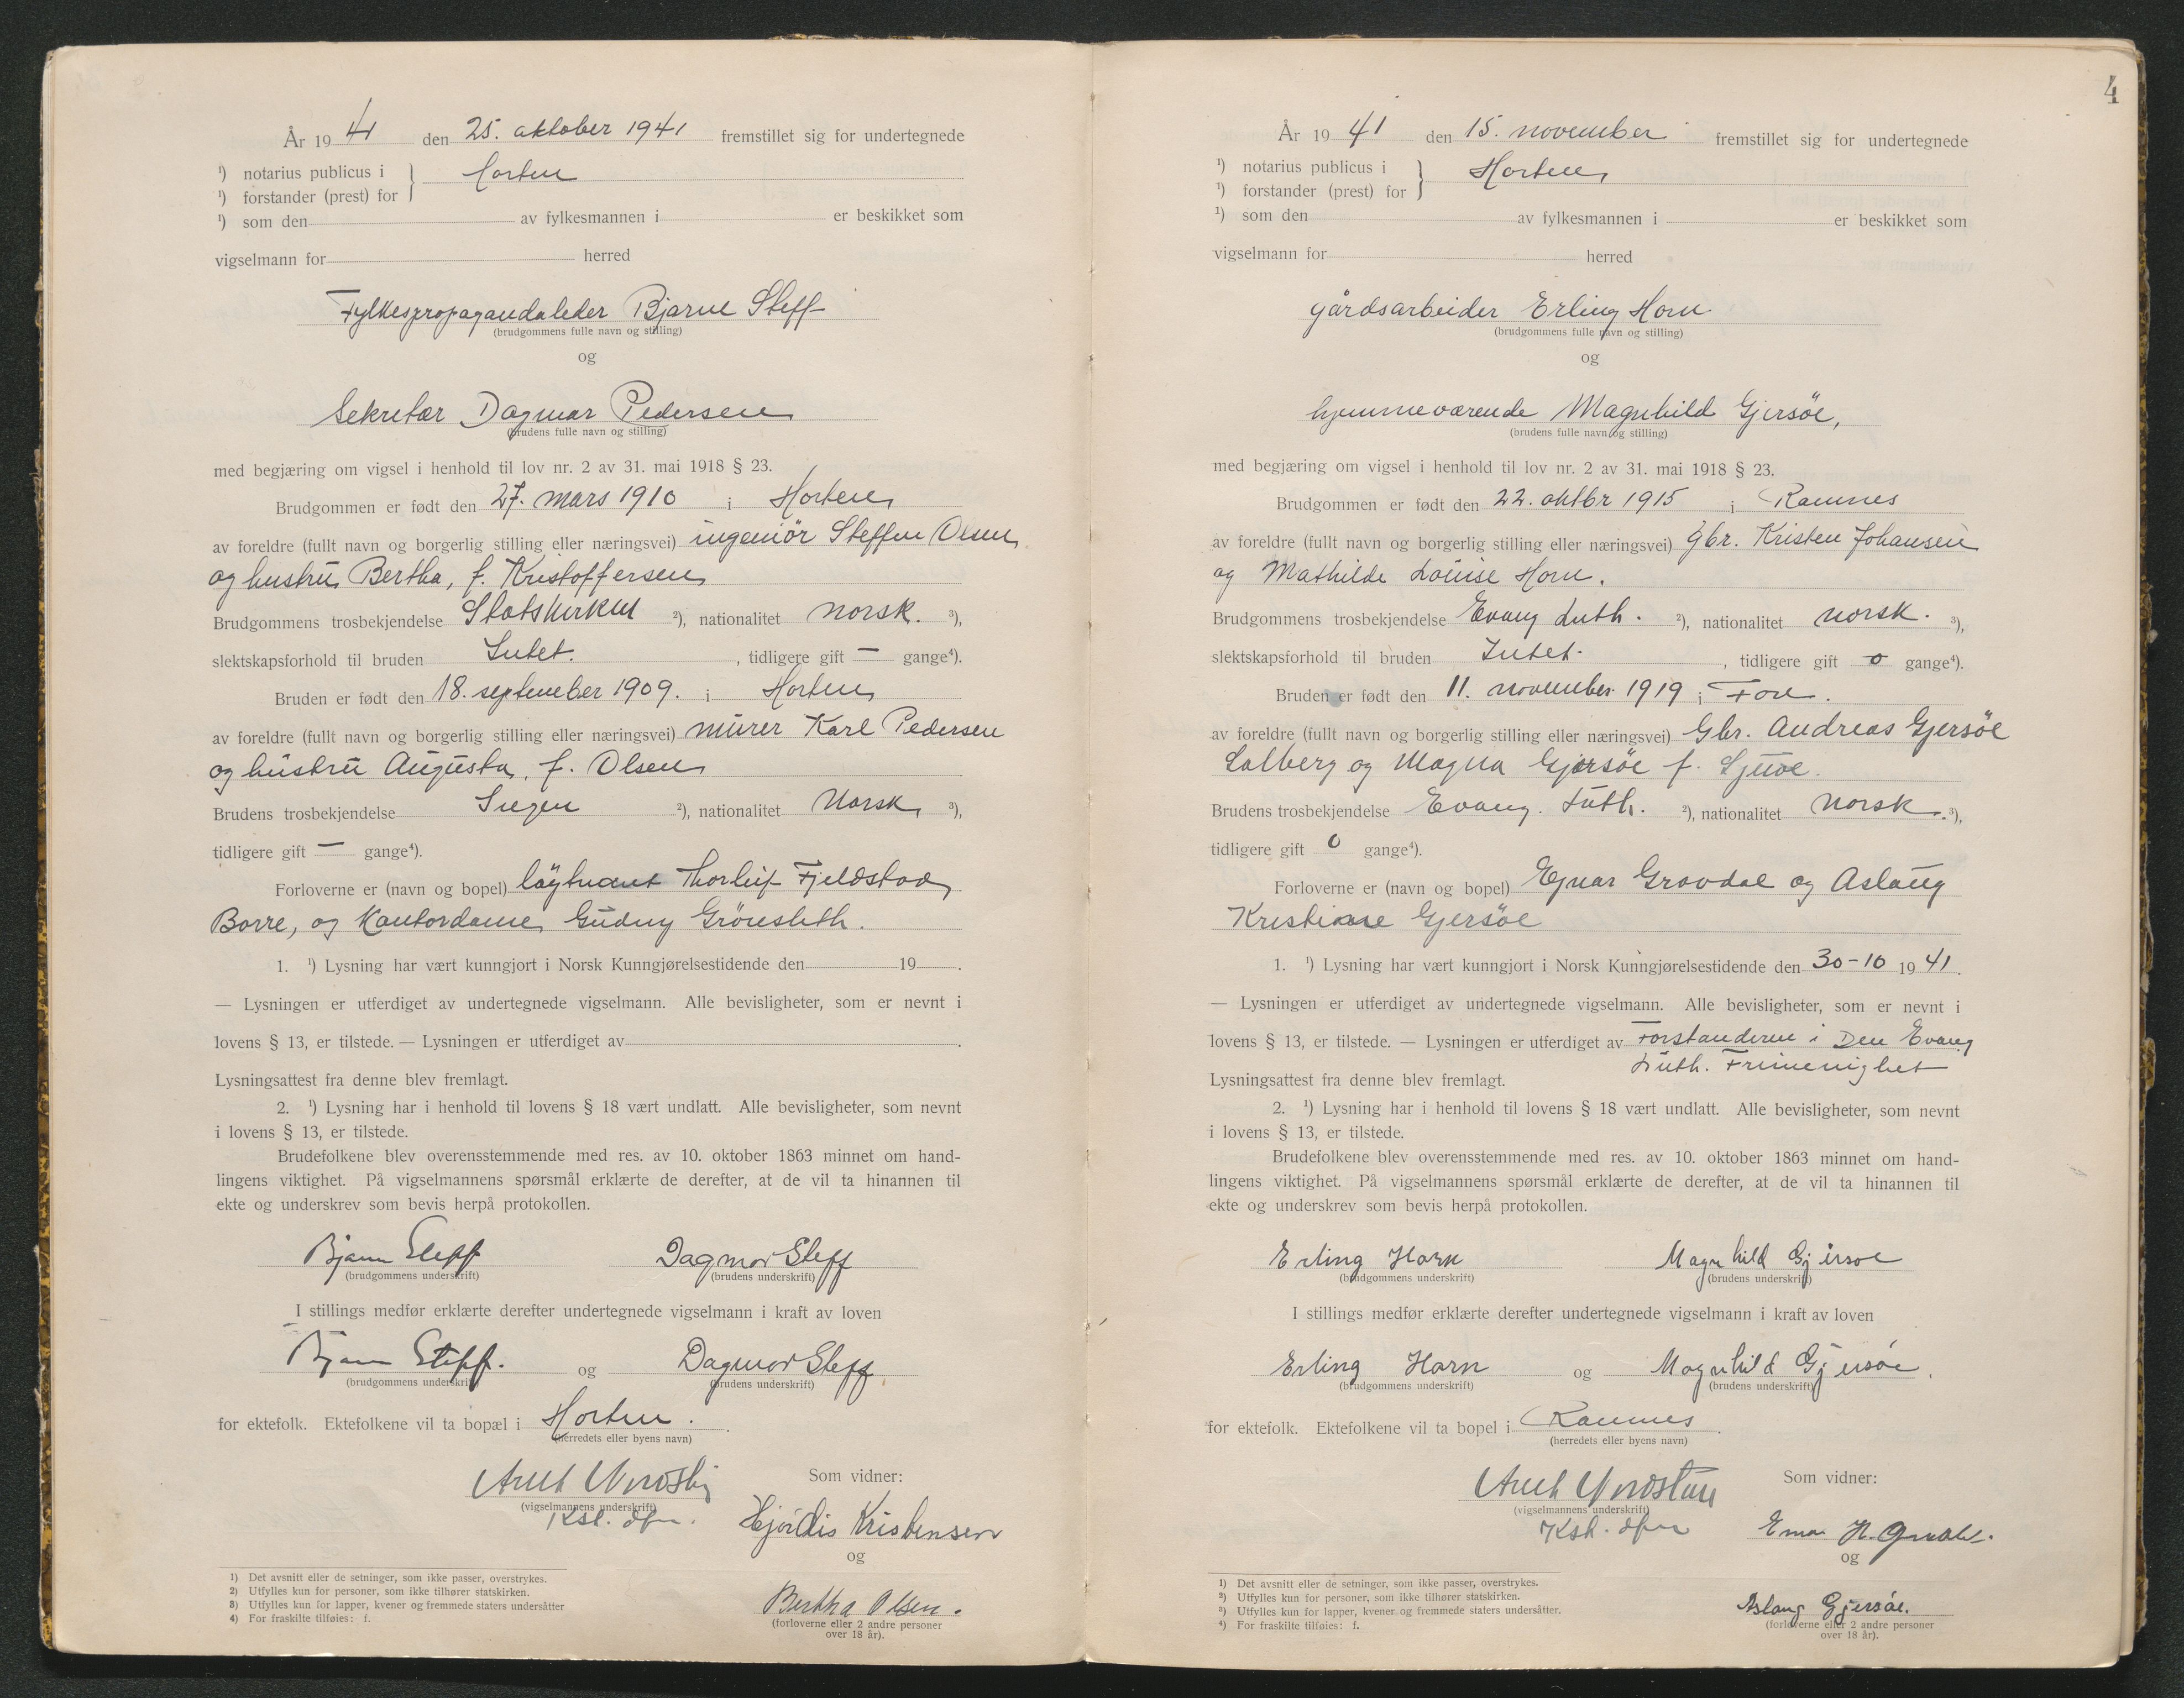 År 19 41 den 25. oktober 1941 fremstillet sig for undertegnede
¹) notarius publicus i } Horten
¹) forstander (prest) for
¹) som den av fylkesmannen i er beskikket som
vigselmann for herred
Fylkespropagandaleder Bjarne Steff
(brudgommens fulle navn og stilling)
og
Sekretær Dagmar Pedersen
(brudens fulle navn og stilling)
med begjæring om vigsel i henhold til lov nr. 2 av 31. mai 1918 § 23.
Brudgommen er født den 27. mars 1910 i Horten
av foreldre (fullt navn og borgerlig stilling eller næringsvei) ingeniör Steffen Olsen
og hustru Bertha, f. Kristoffersen
Brudgommens trosbekjendelse Statskirken ²), nationalitet norsk. ³),
slektskapsforhold til bruden Intet. , tidligere gift — gange⁴).
Bruden er født den 18. september 1909. i Horten
av foreldre (fullt navn og borgerlig stilling eller næringsvei) murer Karl Pedersen
og hustru Augusta, f. Olsen
Brudens trosbekjendelse Ingen ²), nationalitet Norsk ³),
tidligere gift — gange⁴).
Forloverne er (navn og bopel) löytnant Thorleif Fjeldstad
Borre, og Kontordame Gudny Grönsleth.
1. ¹) Lysning har vært kunngjort i Norsk Kunngjørelsestidende den 19 .
— Lysningen er utferdiget av undertegnede vigselmann. Alle bevisligheter, som er nevnt i
lovens § 13, er tilstede. — Lysningen er utferdiget av .
Lysningsattest fra denne blev fremlagt.
2. ¹) Lysning har i henhold til lovens § 18 vært undlatt. Alle bevisligheter, som nevnt
i lovens § 13, er tilstede.
Brudefolkene blev overensstemmende med res. av 10. oktober 1863 minnet om hand-
lingens viktighet. På vigselmannens spørsmål erklærte de derefter, at de vil ta hinannen til
ekte og underskrev som bevis herpå protokollen.
Bjarne Steff Dagmar Steff
(brudgommens underskrift) (brudens underskrift)
I stillings medfør erklærte derefter undertegnede vigselmann i kraft av loven
Bjarne Steff. og Dagmar Steff
(brudgommens underskrift) (brudens underskrift)
for ektefolk. Ektefolkene vil ta bopæl i Horten .
(herredets eller byens navn)
Som vidner:
(vigselmannens underskrift)
Kst. Hjördis Kristensen
og
Bertha Olsen.
(forloverne eller 2 andre personer
over 18 år).
1) Det avsnitt eller de setninger, som ikke passer, overstrykes.
2) Utfylles kun for personer, som ikke tilhører statskirken.
3) Utfylles kun for lapper, kvener og fremmede staters undersåtter
4) For fraskilte tilføies: f.
4
År 19 41 den 15. november fremstillet sig for undertegnede
¹) notarius publicus i } Horten
¹) forstander (prest) for
¹) som den av fylkesmannen i er beskikket som
vigselmann for herred
gårdsarbeider Erling Horn
(brudgommens fulle navn og stilling)
og
hjemmeværende Magnhild Gjersöe,
(brudens fulle navn og stilling)
med begjæring om vigsel i henhold til lov nr. 2 av 31. mai 1918 § 23.
Brudgommen er født den 22. oktbr 1915 i Ramnes
av foreldre (fullt navn og borgerlig stilling eller næringsvei) Gbr. Kristen Johansen
og Mathilde Louise Horn.
Brudgommens trosbekjendelse Evang Luth. ²), nationalitet norsk. ³),
slektskapsforhold til bruden Intet. , tidligere gift 0 gange⁴).
Bruden er født den 11. november 1919 i Fon.
av foreldre (fullt navn og borgerlig stilling eller næringsvei) Gbr. Andreas Gjersöe
Solberg og Magna Gjersöe f.
Brudens trosbekjendelse Evang. Luth. ²), nationalitet norsk. ³),
tidligere gift 0 gange⁴).
Forloverne er (navn og bopel) Ejnar Gravdal og Aslaug
Kristiane Gjersöe
1. ¹) Lysning har vært kunngjort i Norsk Kunngjørelsestidende den 30-10 19 41.
— Lysningen er utferdiget av undertegnede vigselmann. Alle bevisligheter, som er nevnt i
lovens § 13, er tilstede. — Lysningen er utferdiget av Forstanderen i Den Evang
Luth. Frimenighet
Lysningsattest fra denne blev fremlagt.
2. ¹) Lysning har i henhold til lovens § 18 vært undlatt. Alle bevisligheter, som nevnt
i lovens § 13, er tilstede.
Brudefolkene blev overensstemmende med res. av 10. oktober 1863 minnet om hand-
lingens viktighet. På vigselmannens spørsmål erklærte de derefter, at de vil ta hinannen til
ekte og underskrev som bevis herpå protokollen.
Erling Horn Magnhild Gjersoe
(brudgommens underskrift) (brudens underskrift)
I stillings medfør erklærte derefter undertegnede vigselmann i kraft av loven
Erling Horn og Magnhild Gjersöe.
(brudgommens underskrift) (brudens underskrift)
for ektefolk. Ektefolkene vil ta bopel i Ramnes .
(herredets eller byens navn)
Som vidner:
(vigselmannens underskrift)
Kst.
og
Aslaug Gjersöe.
(forloverne eller 2 andre personer
over 18 år).
¹) Det avsnitt eller de setninger, som ikke passer, overstrykes.
²) Utfylles kun for personer, som ikke tilhører statskirken.
³) Utfylles kun for lapper, kvener og fremmede staters undersåtter.
⁴) For fraskilte tilføies: f.